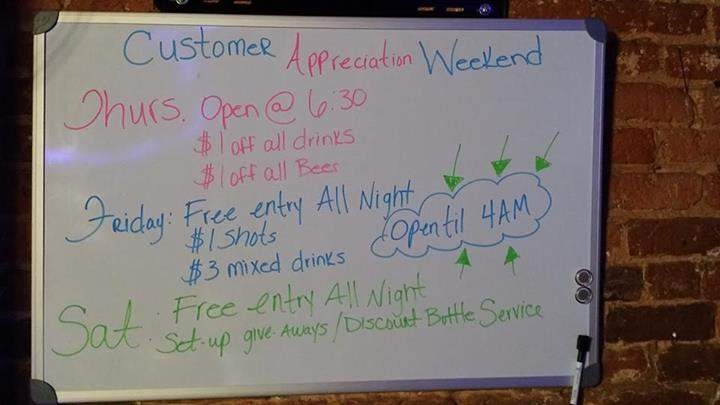 Customer Appreciation Weekend
Thurs. Open @ 6:30
$1 off all drinks
$1 off all Beer
Friday: Free entry All Night
$1 Shots
$3 mixed drinks
Open til 4AM
Sat. Free entry All Night
Set-up give-Aways / Discount Bottle Service